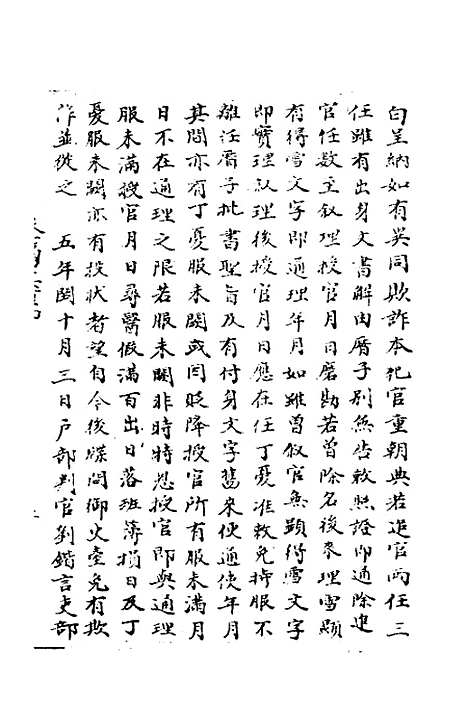 白呈納如有異同欺詐本犯官重朝典若追官兩任三
任雖有出身文書解由曆子別無告敕照證即通除追
官任數主敘理授官月日磨勘若曾除名後來理雪顯
有得雪文字即通理年月如雖曾敘官無顯得雪文字
即實理敘理後授官月日應在任丁憂准敕免持服不
離任曆子批書聖旨及有付身文字舊來便通使年月
其間亦有丁憂服未闋或因貶降授官所有服未滿月
日不在通理之限若服未闋非時特恩授官即與通理
服未滿授官月日尋醫假滿百出日落班簿損日及丁
憂服未闋亦有投狀者望自今後牒問御史臺免有欺
作並從之　五年閏十月三日戶部判官劉鍇言吏部